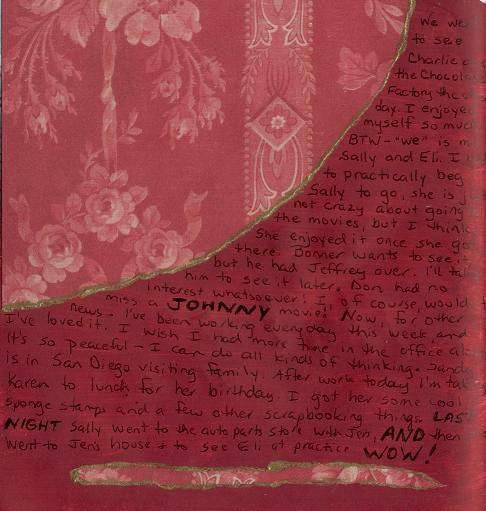 We we
to see
Charlie a
the Chocola
Factory the o
day. I enjoyed
myself so muc
BTW - "we" is m
Sally and Eli. I
to practically beg
Sally to go, she is j
not crazy about going
the movies, but I think
She enjoyed it once she go
there. Donner wants to see it
but he had Jeffrey over. I'll ta
him to see it later. Don had no
interest whatsoever! I, of course, would
miss a JOHNNY movie! Now, for other
news - I've been working everyday this week and
I've loved it. I wish I had more time in the office al
It's so peaceful - I can do all kinds of thinking. Sand
is in San Diego visiting family. After work today I'm ta
Karen to lunch for her birthday. I got her some cool
sponge stamps and a few other scrapbooking things. LAS
NIGHT Sally went to the auto parts store with Jen, AND then
went to Jen's house + to see Eli at practice WOW!